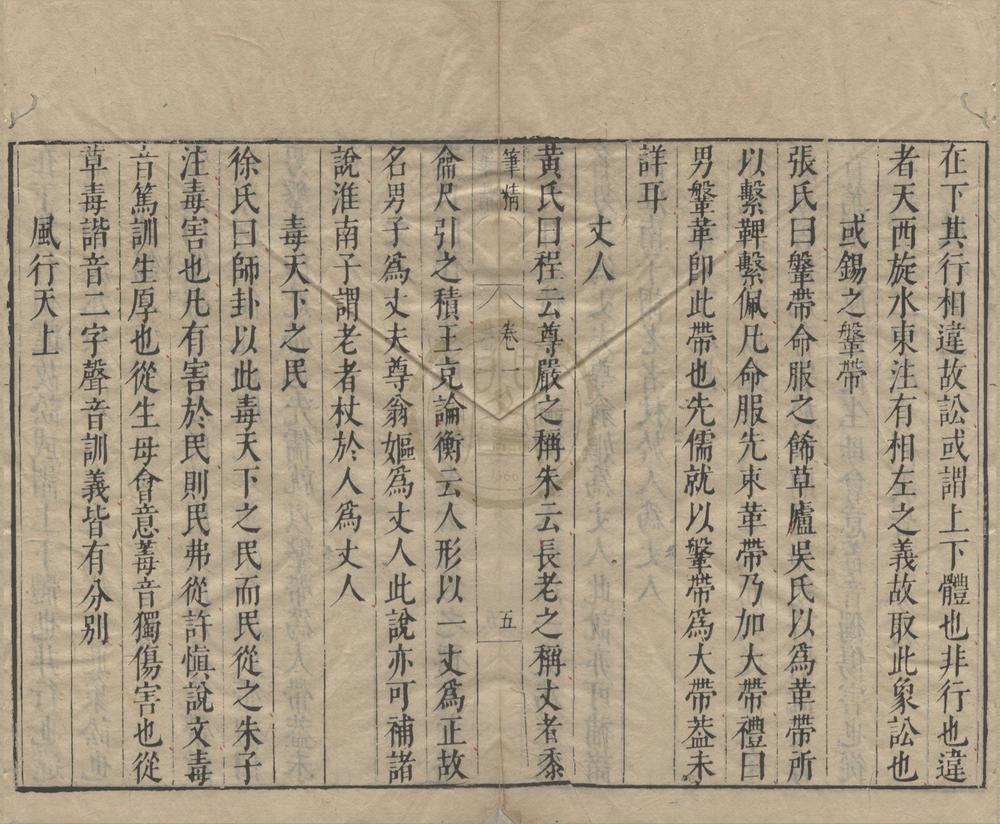 在下其行相違故訟或謂上下體也非行也違
者天西旋水東注有相左之義故取此象訟也
或錫之鞶帶
張氏曰鞶帶命服之餙草廬吳氏以為革帶所
以繫鞞繫佩凡命服先束革帶乃加大帶禮曰
男鞶革即此帶也先儒就以鞶帶為大帶葢未
詳耳
丈人
黃氏曰程云尊嚴之稱朱云長老之稱丈者黍
筆精 卷一 五
龠尺引之積王充論衡云人形以一丈為正故
名男子為丈夫尊翁嫗為丈人此說亦可補諸
說淮南子謂老者杖於人為丈人
毒天下之民
徐氏曰師卦以此毒天下之民而民從之朱子
注毒害也凡有害於民則民弗從許慎說文毒
音篤訓生厚也從生母會意毒音獨傷害也從
草毒諧音二字聲音訓義皆有分別
風行天上